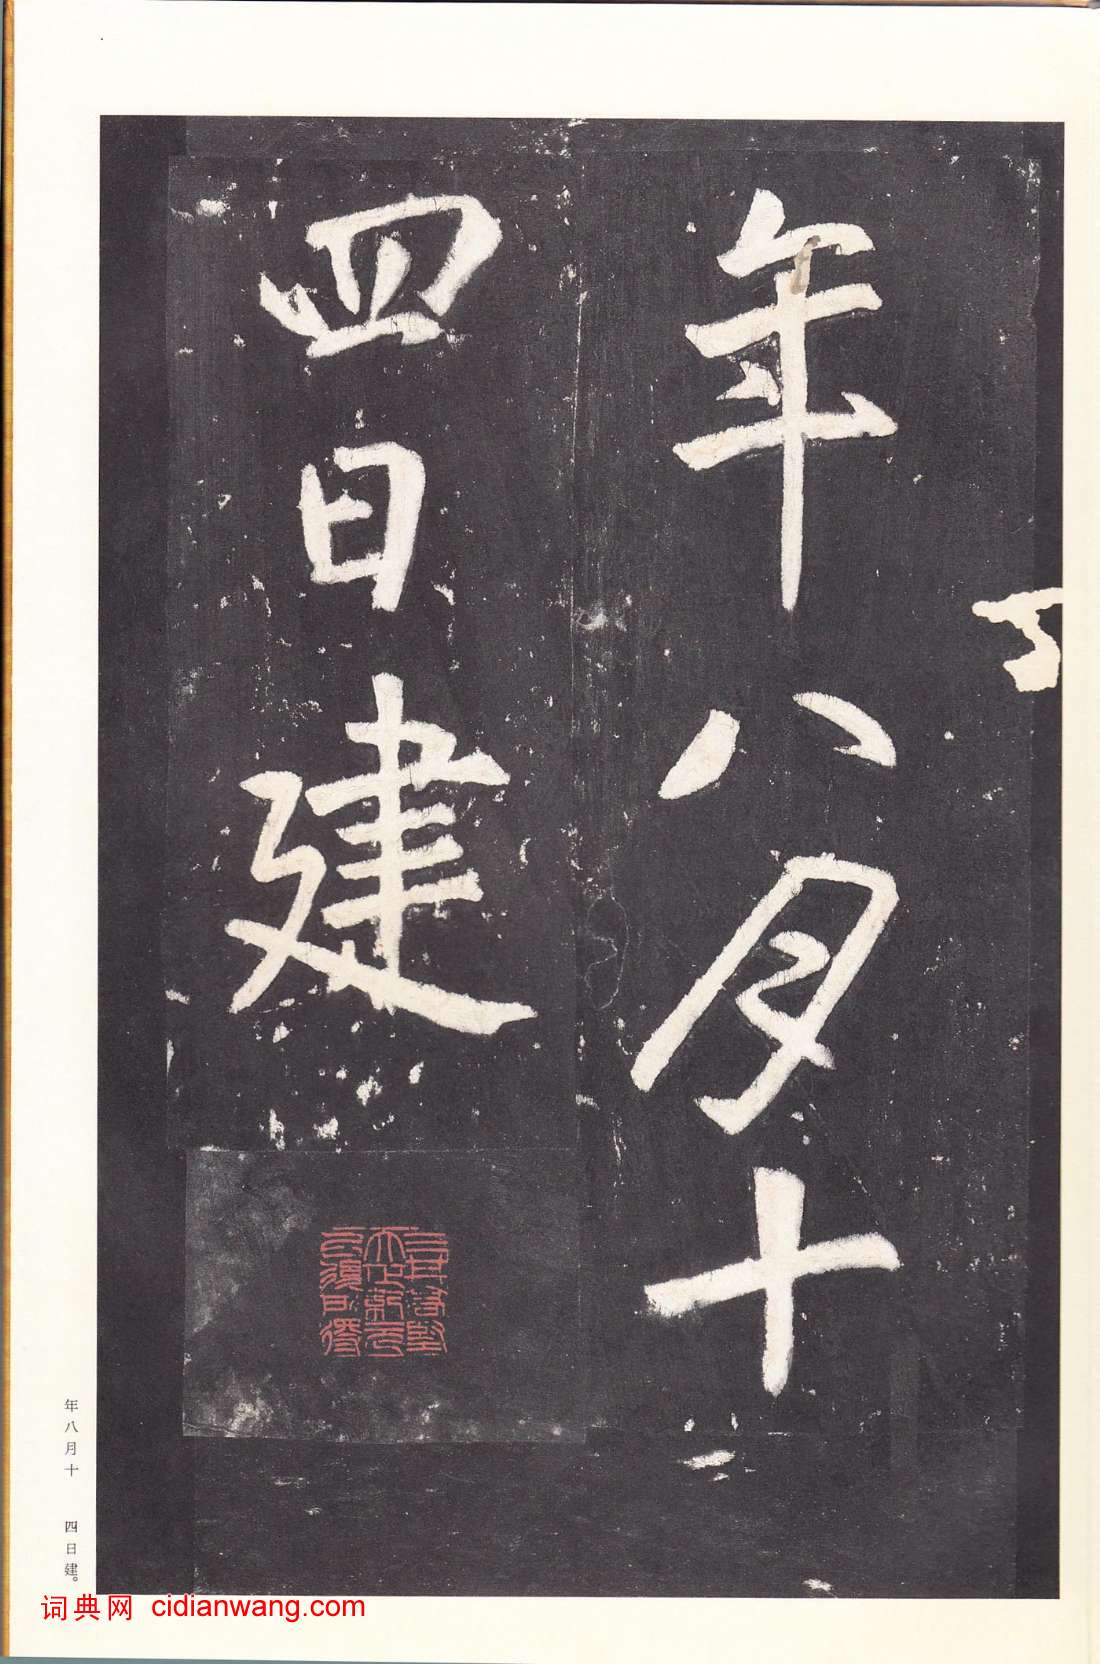 年八月十
四日建
年八月十　四日建。
词典网 cidianwang.com